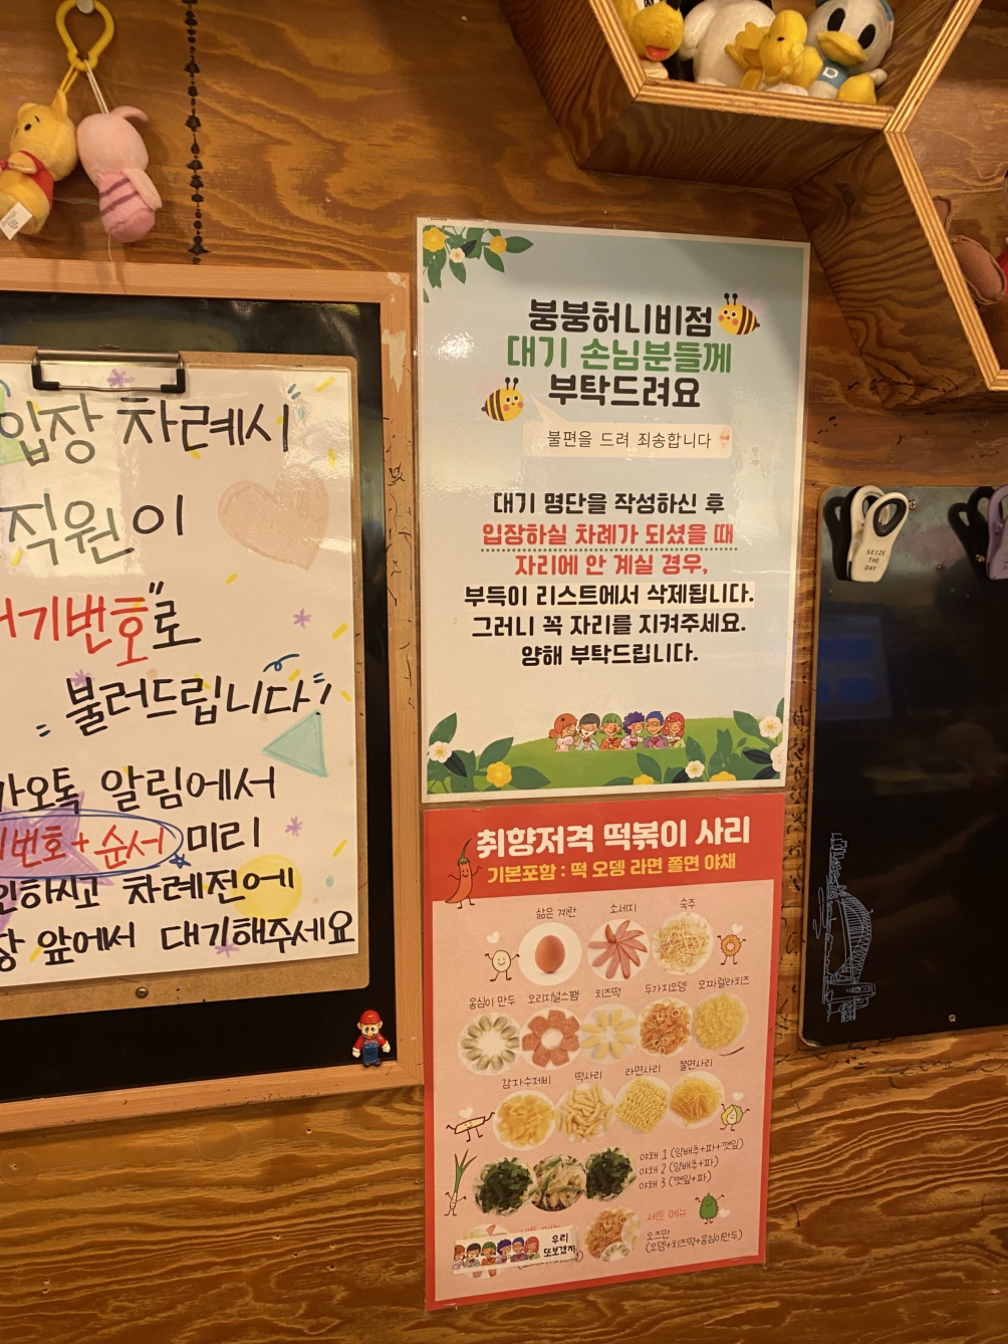 입장 차례시
직원이
대기번호"로
불러드립니다"
카오톡 알림에서
번호+순서 미리
확인하시고 차례전에
앞에서 대기해주세요
붕붕허니비점
대기 손님분들께
부탁드려요
불편을 드려 죄송합니다
대기 명단을 작성하신 후
입장하실 차례가 되셨을 때
자리에 안 계실 경우,
부득이 리스트에서 삭제됩니다.
그러니 꼭 자리를 지켜주세요.
양해 부탁드립니다.
SEIZE
THE
DAY
취향저격 떡볶이 사리
기본포함 : 떡 오뎅 라면 쫄면 야채
삶은 계란 소세지 숙주
옹심이 만두 오리지널스팸 치즈떡 두가지오뎅 모짜렐라치즈
감자수제비 떡사리 라면사리 쫄면사리
야채 1 (양배추+파+깻잎)
야채 2 (양배추+파)
야채 3 (깻잎+파)
세트 메뉴
오즈만
(오뎅+치즈떡+옹심이만두)
우리
또보겠지